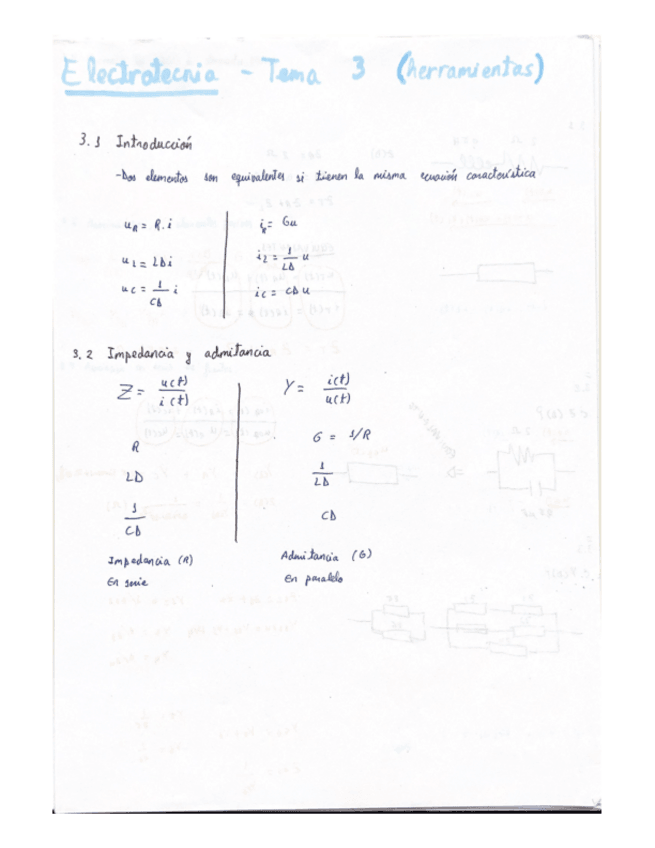 Electrotecnia - Tema 3 (herramientas)
3.1 Introducción
- Dos elementos son equivalentes si tienen la misma ecuación característica
u_R = R.i
i_R = Gu
u_L = LDi
i_L = 1/LD u
u_C = 1/CD i
i_C = CDu
3.2 Impedancia y admitancia
Z = u(t)/i(t)
Y = i(t)/u(t)
R
G = 1/R
LD
1/LD
1/CD
CD
Impedancia (R)
Admitancia (G)
En serie
En paralelo